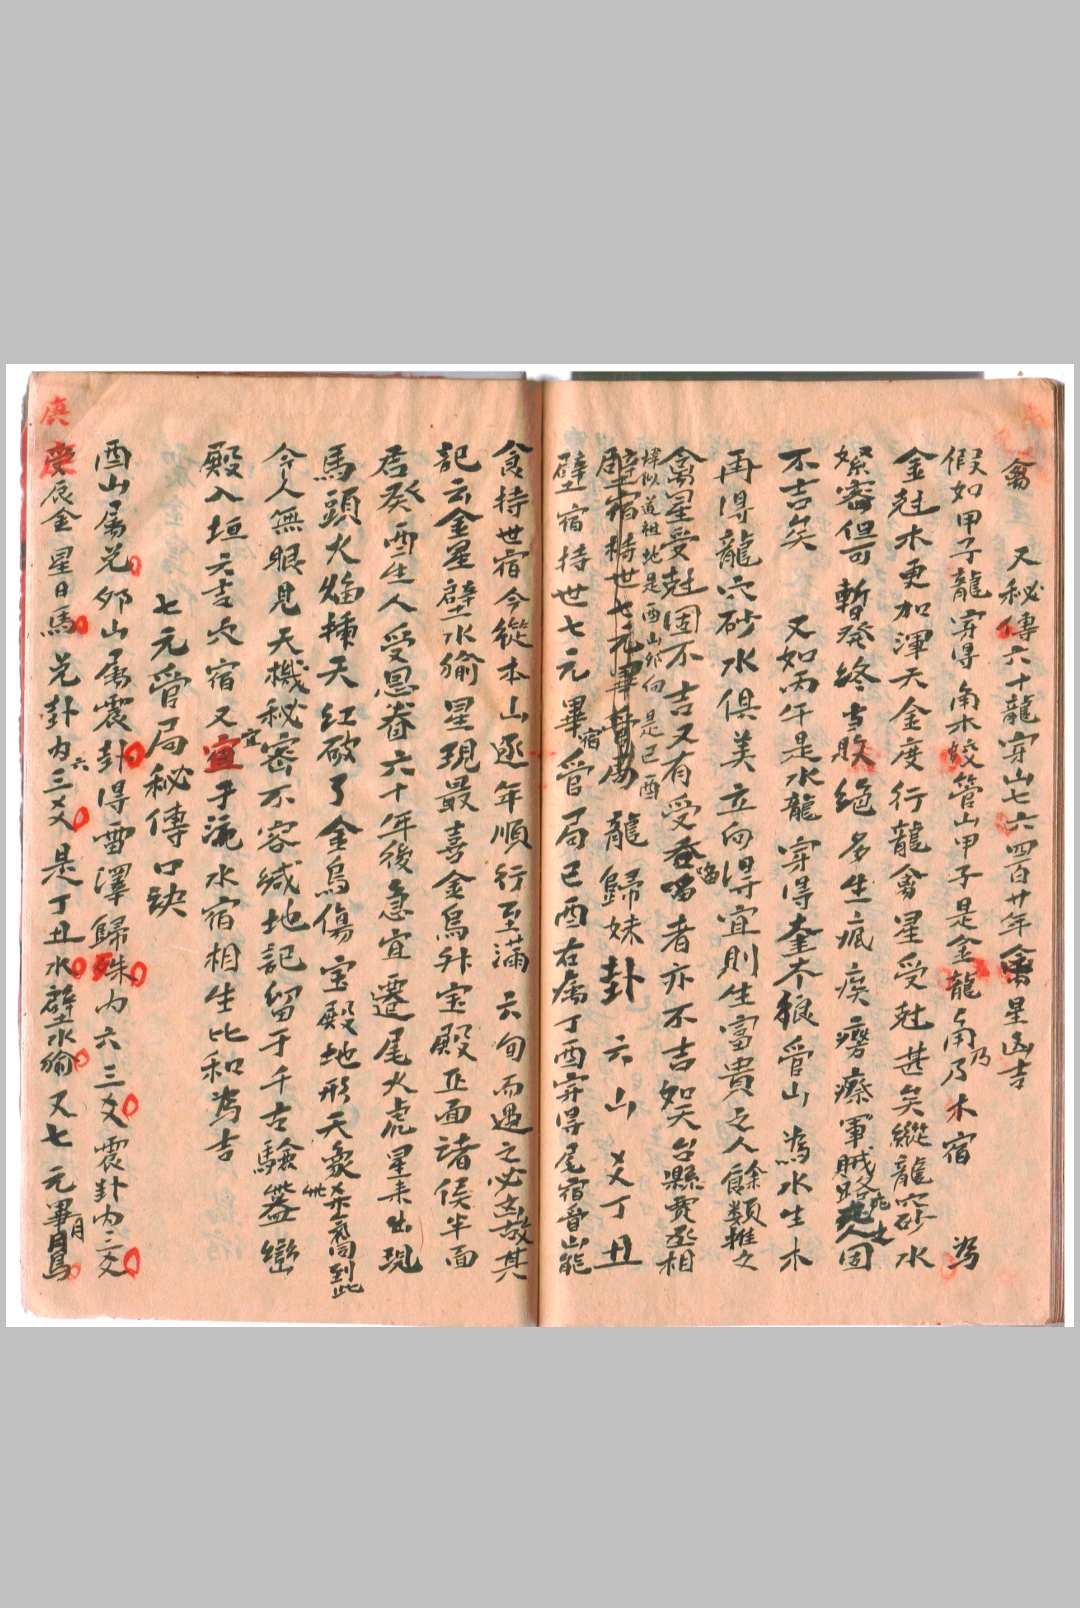 禽　又秘傳六十龍穿山七六四百廿年禽星凶吉
假如甲子龍穿得角木蛟管山甲子是金龍角乃木宿　為
金尅木更加渾天金度行龍禽星受尅甚矣縱龍穴砂水
縈審但可暫發終主敗絕多生疾瘓癆瘵軍賊路死人固
不吉矣　又如丙午是水龍穿得奎木狼管山為水生木
再得龍穴砂水俱美立向得宜則生富貴之人餘類推之
禽星受尅固不吉又有受吞啗者亦不吉如天台縣賣丞相
墳似道祖地是酉山卯向　是己酉
龍歸妹卦　六山爻丁丑
壁宿持世七元畢宿管局己酉右屬丁酉穿得尾宿管山能
食持世宿今從本山逐年順行至滿六旬而遇之必凶故其
記云金星壁水㺄星現最喜金烏升宝殿正面諸侯半面
君癸酉生人受恩眷六十年後急宜遷尾火虎星未出現
馬頭火焰捶天紅破了金烏傷宝殿地形天象希喬到此
令人無眼見天機秘密不容緘地記留于千古驗蓋巒
殿入垣六吉穴宿又宜于流水宿相生比和為吉
七元管局秘傳口訣
酉山屬兌卯山屬震卦得雷澤歸妹內六三爻震卦內三爻
庚
慶辰金星日馬兌卦內六三爻是丁丑水壁水㺄又七元畢月烏